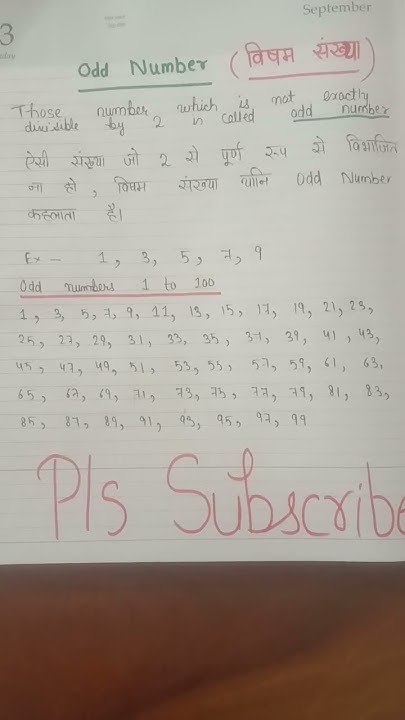 September
3
Odd Number (विषम संख्या)
Those number which is not exactly
divisible by 2 in called odd number
ऐसी संख्या जो 2 से पूर्ण रूप से विभाजित
ना हो, विषम संख्या यानि Odd Number
कहलाता है।
Ex - 1, 3, 5, 7, 9
Odd numbers 1 to 100
1, 3, 5, 7, 9, 11, 13, 15, 17, 19, 21, 23,
25, 27, 29, 31, 33, 35, 37, 39, 41, 43,
45, 47, 49, 51, 53, 55, 57, 59, 61, 63,
65, 67, 69, 71, 73, 75, 77, 79, 81, 83,
85, 87, 89, 91, 93, 95, 97, 99
Pls Subscribe